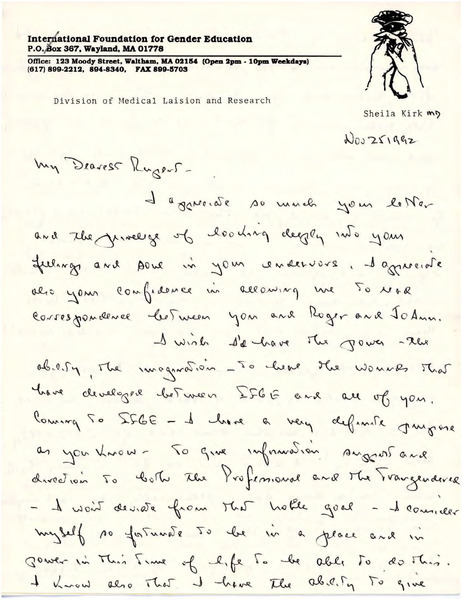 International Foundation for Gender Education
P.O. Box 367, Wayland, MA 01778
Office: 123 Moody Street, Waltham, MA 02154 (Open 2pm - 10pm Weekdays)
(617) 899-2212, 894-8340, FAX 899-5703
Division of Medical Laision and Research
Sheila Kirk MD
Nov 25 1992
My Dearest Rupert -
I appreciate so much your letter
and the privelege of looking deeply into your
feelings and soul in your endeavors. I appreciate
also your confidence in allowing me to read
correspondence between you and Roger and JoAnn.
I wish I'd have the power - the
ability, the imagination - to heal the wounds that
have developed between IFGE and all of you.
Coming to IFGE - I have a very definite purpose
as you know - to give information support and
direction to both the Professional and the Transgendered
- I won't deviate from that noble goal - I consider
myself so fortunate to be in a place and in
power in this time of life to be able to do this.
I know also that I have the ability to give